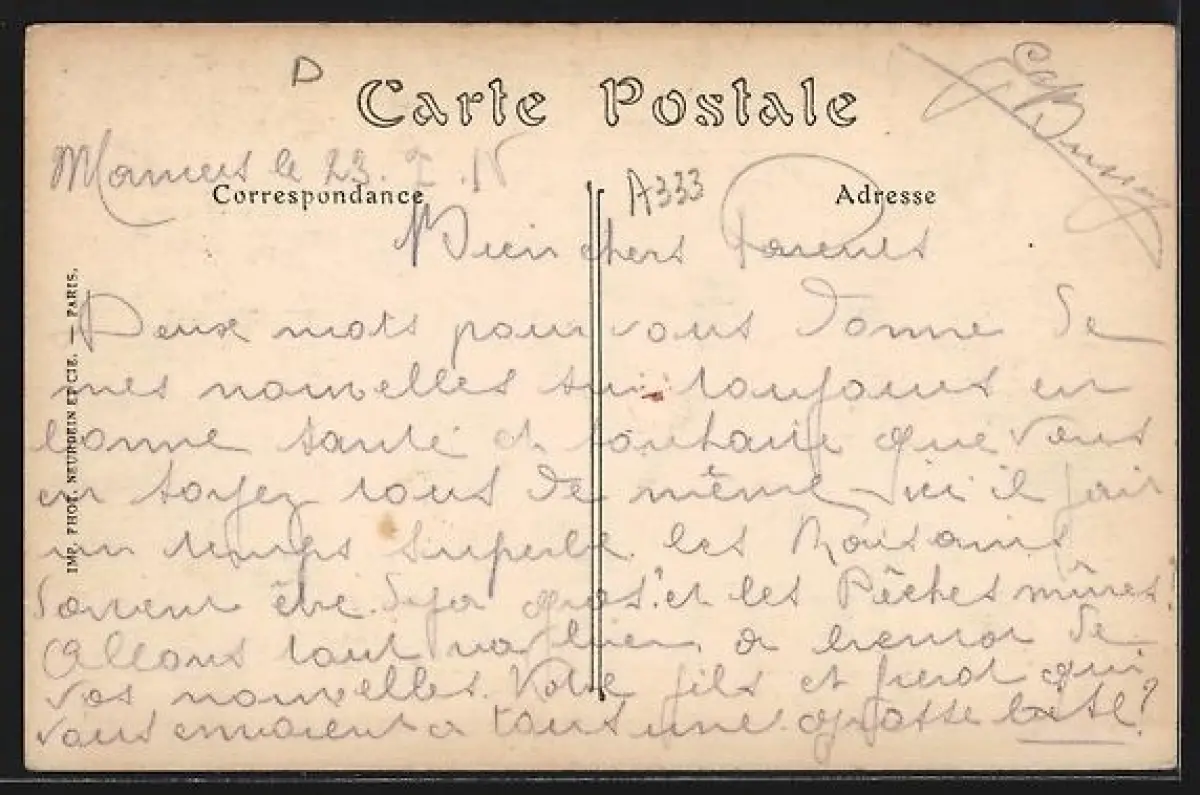 D
Carte Postale
Mamers le 23. 7. 15
Correspondance
A333
Adresse
Bien chers Parents
Deux mots pour vous donne de
mes nouvelles suis toujours en
bonne santé et souhaite que vous
en soyez tous de même ici il fait
un temps superbe les Raisains
doivent être deja gros et les Pêches mûres?
Allons tout va bien a bientot de
vos nouvelles. Votre fils et frerot qui
vous envoient a tous une grosse bise?
IMP. PHOT. NEURDEIN ET CIE. — PARIS.